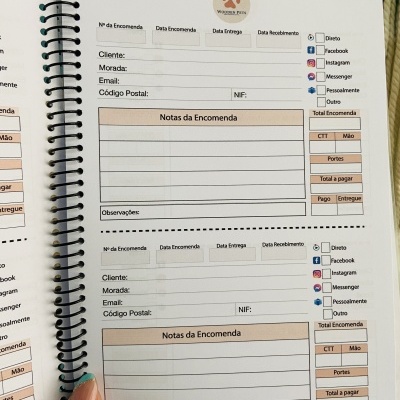 WOODEN PETS
Nº da Encomenda Data Encomenda Data Entrega Data Recebimento
Direto
Facebook
Instagram
Messenger
Pessoalmente
Outro
Cliente:
Morada:
Email:
Código Postal: NIF:
Notas da Encomenda
Observações:
Total Encomenda
CTT Mão
Portes
Total a pagar
Pago Entregue
Nº da Encomenda Data Encomenda Data Entrega Data Recebimento
Direto
Facebook
Instagram
Messenger
Pessoalmente
Outro
Cliente:
Morada:
Email:
Código Postal: NIF:
Notas da Encomenda
Total Encomenda
CTT Mão
Portes
Total a pagar
Mão
Entregue